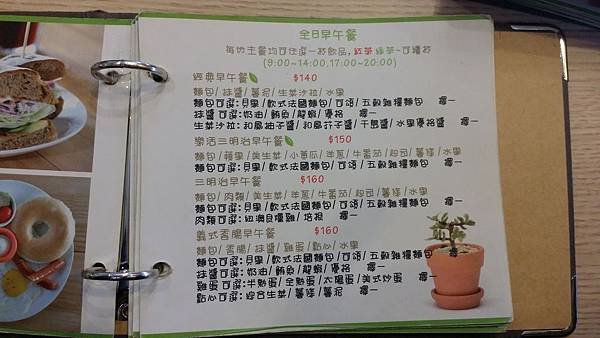 全日早午餐
每份主餐均可任選一杯飲品,紅茶 綠茶~可續杯
(9:00~14:00,17:00~20:00)
經典早午餐 $140
麵包/抹醬/薯泥/生菜沙拉/水果
麵包可選:貝果/軟式法國麵包/可頌/五穀雜糧麵包 擇一
抹醬可選:奶油/鮪魚/龍蝦/優格 擇一
生菜沙拉:和風柚子醬/和風芥子醬/千島醬/水果優格醬 擇一
樂活三明治早午餐 $150
麵包/蘋果/美生菜/小黃瓜/洋蔥/牛番茄/起司/薯條/水果
麵包可選:貝果/軟式法國麵包/可頌/五穀雜糧麵包 擇一
三明治早午餐 $160
麵包/肉類/美生菜/洋蔥/牛番茄/起司/薯條/水果
麵包可選:貝果/軟式法國麵包/可頌/五穀雜糧麵包 擇一
肉類可選:紐澳良燻雞/培根 擇一
義式香腸早午餐 $160
麵包/香腸/抹醬/雞蛋/點心/水果
麵包可選:貝果/軟式法國麵包/可頌/五穀雜糧麵包 擇一
抹醬可選:奶油/鮪魚/龍蝦/優格 擇一
雞蛋可選:半熟蛋/全熟蛋/太陽蛋/美式炒蛋 擇一
點心可選:綜合生菜/薯條/薯泥 擇一